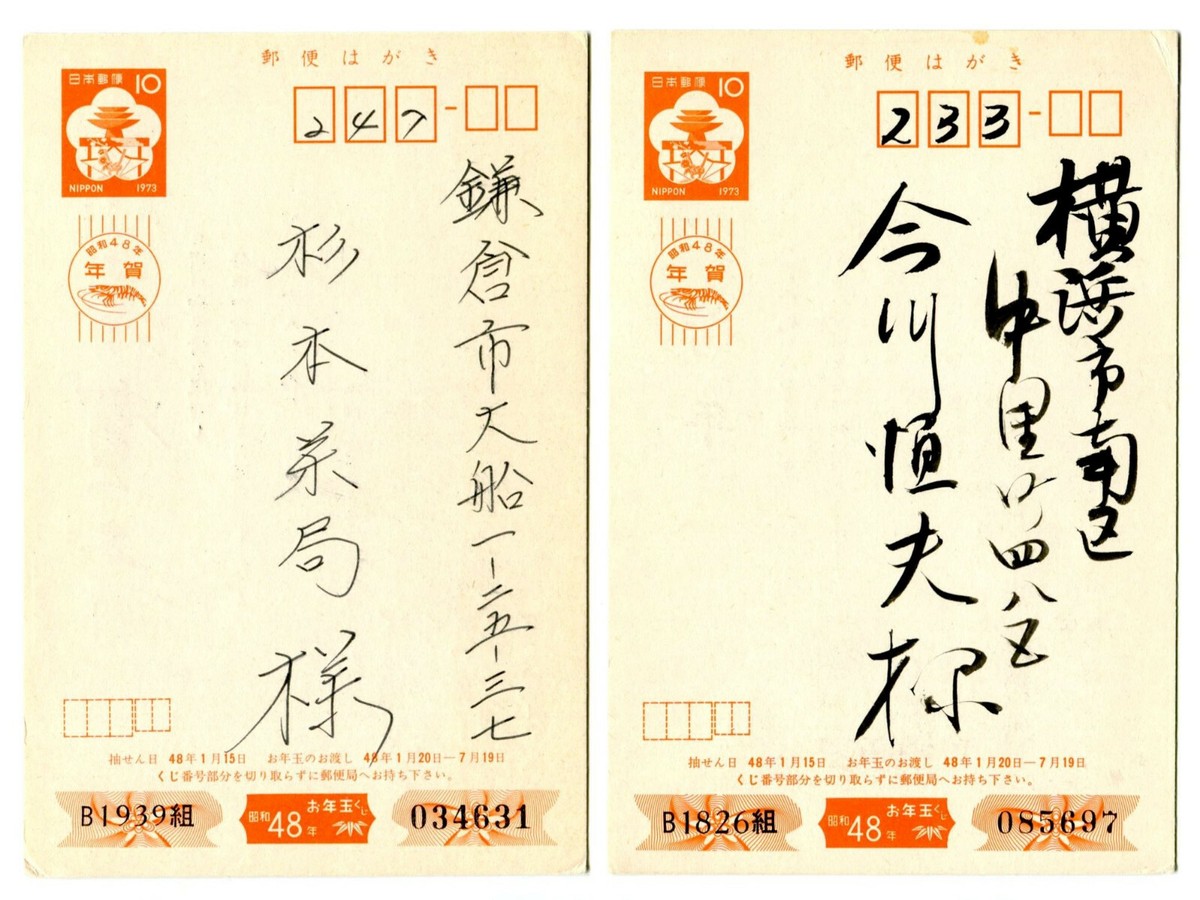 郵便はがき
日本郵便 10
NIPPON 1973
247-
昭和48年
年賀
鎌倉市大船一-二五-三七
杉本薬局
様
抽せん日 48年1月15日 お年玉のお渡し 48年1月20日―7月19日
くじ番号部分を切り取らずに郵便局へお持ち下さい。
B1939組
昭和48年
お年玉くじ
034631
郵便はがき
日本郵便 10
NIPPON 1973
233-
昭和48年
年賀
横浜市南区
中里町四八五
今川恒夫様
抽せん日 48年1月15日 お年玉のお渡し 48年1月20日―7月19日
くじ番号部分を切り取らずに郵便局へお持ち下さい。
B1826組
昭和48年
お年玉くじ
085697